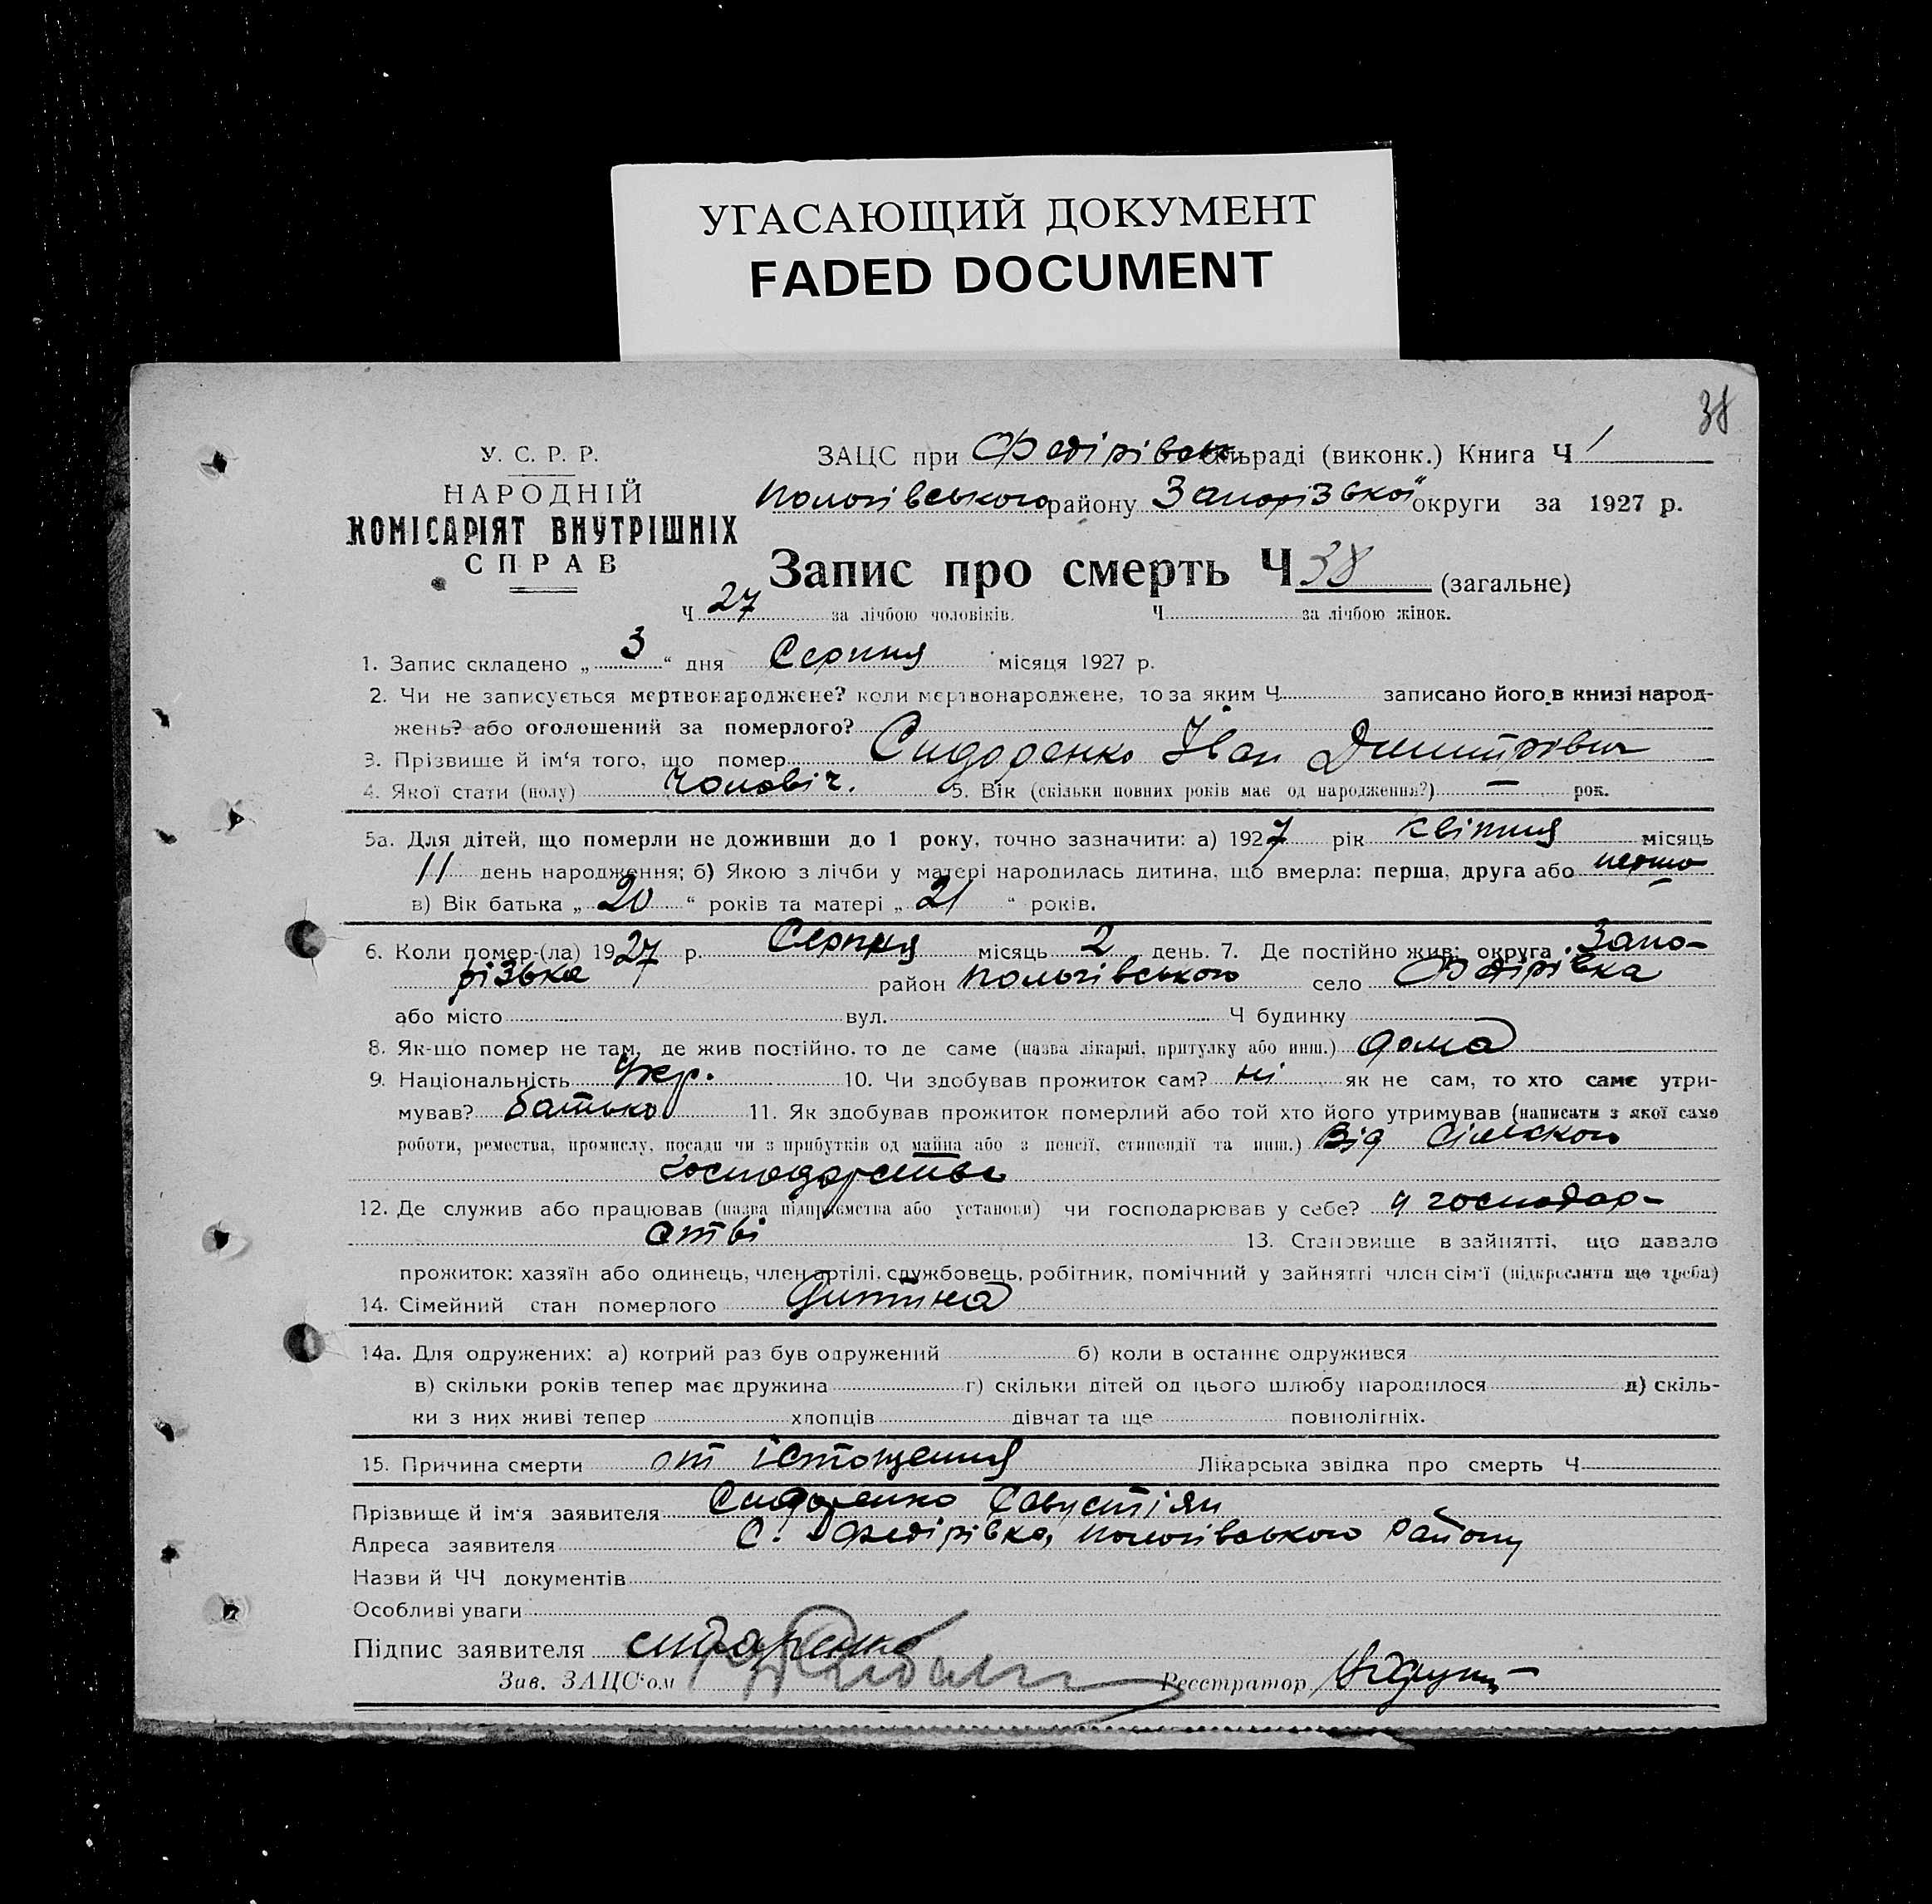 УГАСАЮЩИЙ ДОКУМЕНТ
FADED DOCUMENT
38
У. С. Р. Р.
НАРОДНІЙ
КОМІСАРІЯТ ВНУТРІШНІХ
СПРАВ
ЗАЦС при Федірівськ. сільраді (виконк.) Книга Ч 1
Пологівського району Запорізької округи за 1927 р.
Запис про смерть Ч 38 (загальне)
Ч 27 за лічбою чоловіків. Ч за лічбою жінок.
1. Запис складено „ 3 “ дня Серпня місяця 1927 р.
2. Чи не записується мертвонароджене? коли мертвонароджене, то за яким Ч записано його в книзі народ-
жень? або оголошений за померлого?
3. Прізвище й ім'я того, що помер Сидоренко Іван Дмитрівич
4. Якої стати (полу) чоловіч. 5. Вік (скільки повних років має од народження?) — рок.
5а. Для дітей, що померли не доживши до 1 року, точно зазначити: а) 1927 рік квітня місяць
11 день народження; б) Якою з лічби у матері народилась дитина, що вмерла: перша, друга або
в) Вік батька „ 20 “ років та матері „ 21 “ років.
6. Коли помер-(ла) 1927 р. Серпня місяць 2 день. 7. Де постійно жив: округа Запо-
різька район Пологівського село Федірівка
або місто вул. Ч будинку
8. Як-що помер не там, де жив постійно, то де саме (назва лікарні, притулку або инш.) дома
9. Національність Укр. 10. Чи здобував прожиток сам? ні як не сам, то хто саме утри-
мував? батько 11. Як здобував прожиток померлий або той хто його утримував (написати з якої само
роботи, ремества, промислу, посади чи з прибутків од майна або з пенсії, стипендії та инш.) Від сільского
господарства
12. Де служив або працював (назва підприємства або установи) чи господарював у себе? у господар-
стві 13. Становище в зайнятті, що давало
прожиток: хазяїн або одинець, член артілі, службовець, робітник, помічний у зайнятті член сім'ї (підкреслити що треба)
14. Сімейний стан померлого Дитина
14а. Для одружених: а) котрий раз був одружений б) коли в останнє одружився
в) скільки років тепер має дружина г) скільки дітей од цього шлюбу народилося д) скіль-
ки з них живі тепер хлопців дівчат та ще повнолітніх.
15. Причина смерти от істощения Лікарська звідка про смерть Ч
Прізвище й ім'я заявителя Сидоренко Савустіян
Адреса заявителя С. Федірівка, Пологівського Району
Назви й ЧЧ документів
Особливі уваги
Підпис заявителя сидаренко
Зав. ЗАЦС'ом Реєстратор